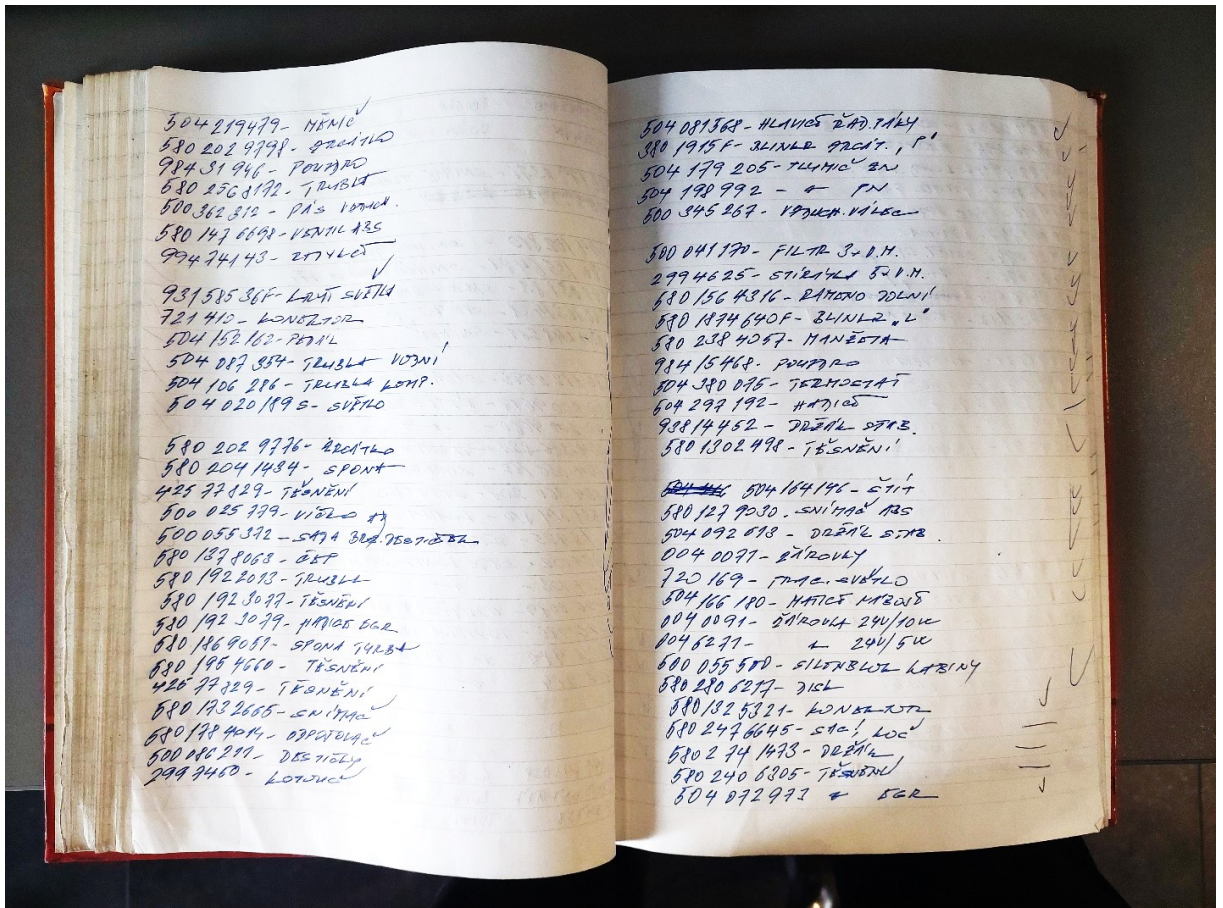 504 219479 - MĚNIČ
580 202 9798 - ZRCÁTKO
984 31 946 - POUZDRO
580 256 8172 - TRUBKA
500 362 312 - PÁS VZDUCH.
580 147 6698 - VENTIL ABS
994 741 43 - 
931 585 36F - KRYT SVĚTLA
721 410 - KONEKTOR
504 152 162 - PEDÁL
504 087 354 - TRUBKA VODNÍ
504 106 286 - TRUBKA KOMP.
504 020 189 S - SVĚTLO
580 202 9776 - ZRCÁTKO
580 204 1434 - SPONA
425 77829 - TĚSNĚNÍ
500 025 779 - VIČKO
500 055 372 - SADA BRZ. DESTIČEK
580 137 8063 - 
580 192 2073 - TRUBKA
580 192 3077 - TĚSNĚNÍ
580 192 3079 - HADICE EGR
580 186 9051 - SPONA TURBA
580 195 4660 - TĚSNĚNÍ
425 77829 - TĚSNĚNÍ
580 173 2665 - SNÍMAČ
580 178 4014 - ODPOJOVAČ
500 086 211 - DESTIČKY
299 7460 - KOTOUČ
504 081 568 - HLAVICE ŘAD. PÁKY
380 1915 F - BLINKR ZRCÁT. "P"
504 179 205 - TLUMIČ ZN
504 198 992 - " PN
500 345 267 - VZDUCH. VÁLEC
500 041 170 - FILTR 3+D.M.
299 4625 - STÍRÁTKA D.M.
580 156 4316 - RAMENO DOLNÍ
580 187 4640F - BLINKR "L"
580 238 4057 - MANŽETA
984 15468 - POUZDRO
504 380 075 - TERMOSTAT
504 297 192 - HADICE
938 14452 - DRŽÁK STAB.
580 1302 498 - TĚSNĚNÍ
504 164 196 - ŠTÍT
580 127 9030 - SNÍMAČ ABS
504 092 073 - DRŽÁK STAB.
004 0071 - ŽÁROVKY
720 169 - SVĚTLO
504 166 180 - MATICE NÁBOJE
004 0091 - ŽÁROVKA 24V/10W
004 6271 - " 24V/5W
500 055 500 - SILENBLOK KABINY
580 280 6217 - DISK
580 132 5321 - KONEKTOR
580 247 6645 - SACÍ KOČ
580 274 1473 - DRŽÁK
580 240 6305 - TĚSNĚNÍ
504 072 973 " EGR